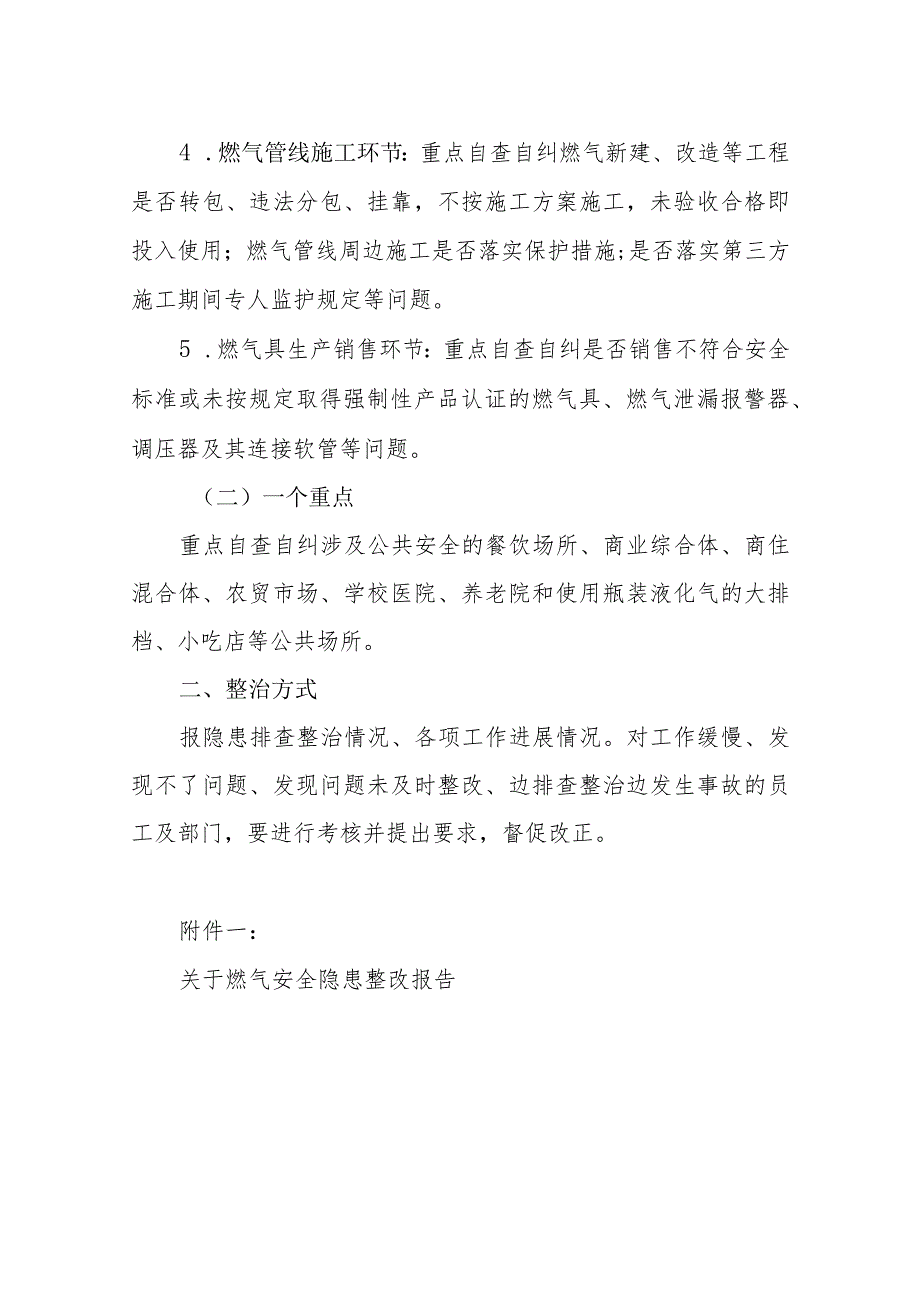 4 .燃气管线施工环节：重点自查自纠燃气新建、改造等工程
是否转包、违法分包、挂靠，不按施工方案施工，未验收合格即
投入使用；燃气管线周边施工是否落实保护措施;是否落实第三方
施工期间专人监护规定等问题。
5 .燃气具生产销售环节：重点自查自纠是否销售不符合安全
标准或未按规定取得强制性产品认证的燃气具、燃气泄漏报警器、
调压器及其连接软管等问题。
（二）一个重点
重点自查自纠涉及公共安全的餐饮场所、商业综合体、商住
混合体、农贸市场、学校医院、养老院和使用瓶装液化气的大排
档、小吃店等公共场所。
二、整治方式
报隐患排查整治情况、各项工作进展情况。对工作缓慢、发
现不了问题、发现问题未及时整改、边排查整治边发生事故的员
工及部门，要进行考核并提出要求，督促改正。
附件一：
关于燃气安全隐患整改报告